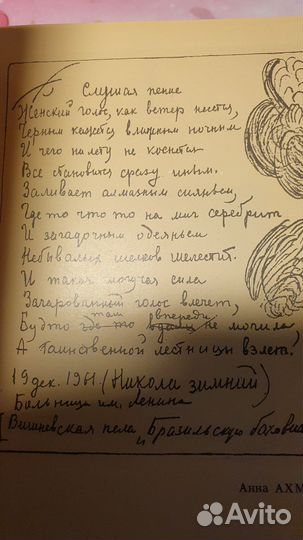 Слушая пение
Женский голос, как ветер несется,
Черным кажется влажным ночным
И чего на лету не коснется
Все становится сразу иным.
Заливает алмазным сияньем,
Где то что то на миг серебрит
И загадочным одеяньем
Небывалых шелков шелестит.
И такая могучая сила
Зачарованный голос влечет,
там впереди
Будто где то вдали не могила,
А таинственной лестницы взлет.
19 дек. 1961 (Никола зимний)
Больница им. Ленина
Вишневская пела „Бразильскую бахиа
Анна АХМ
Avito